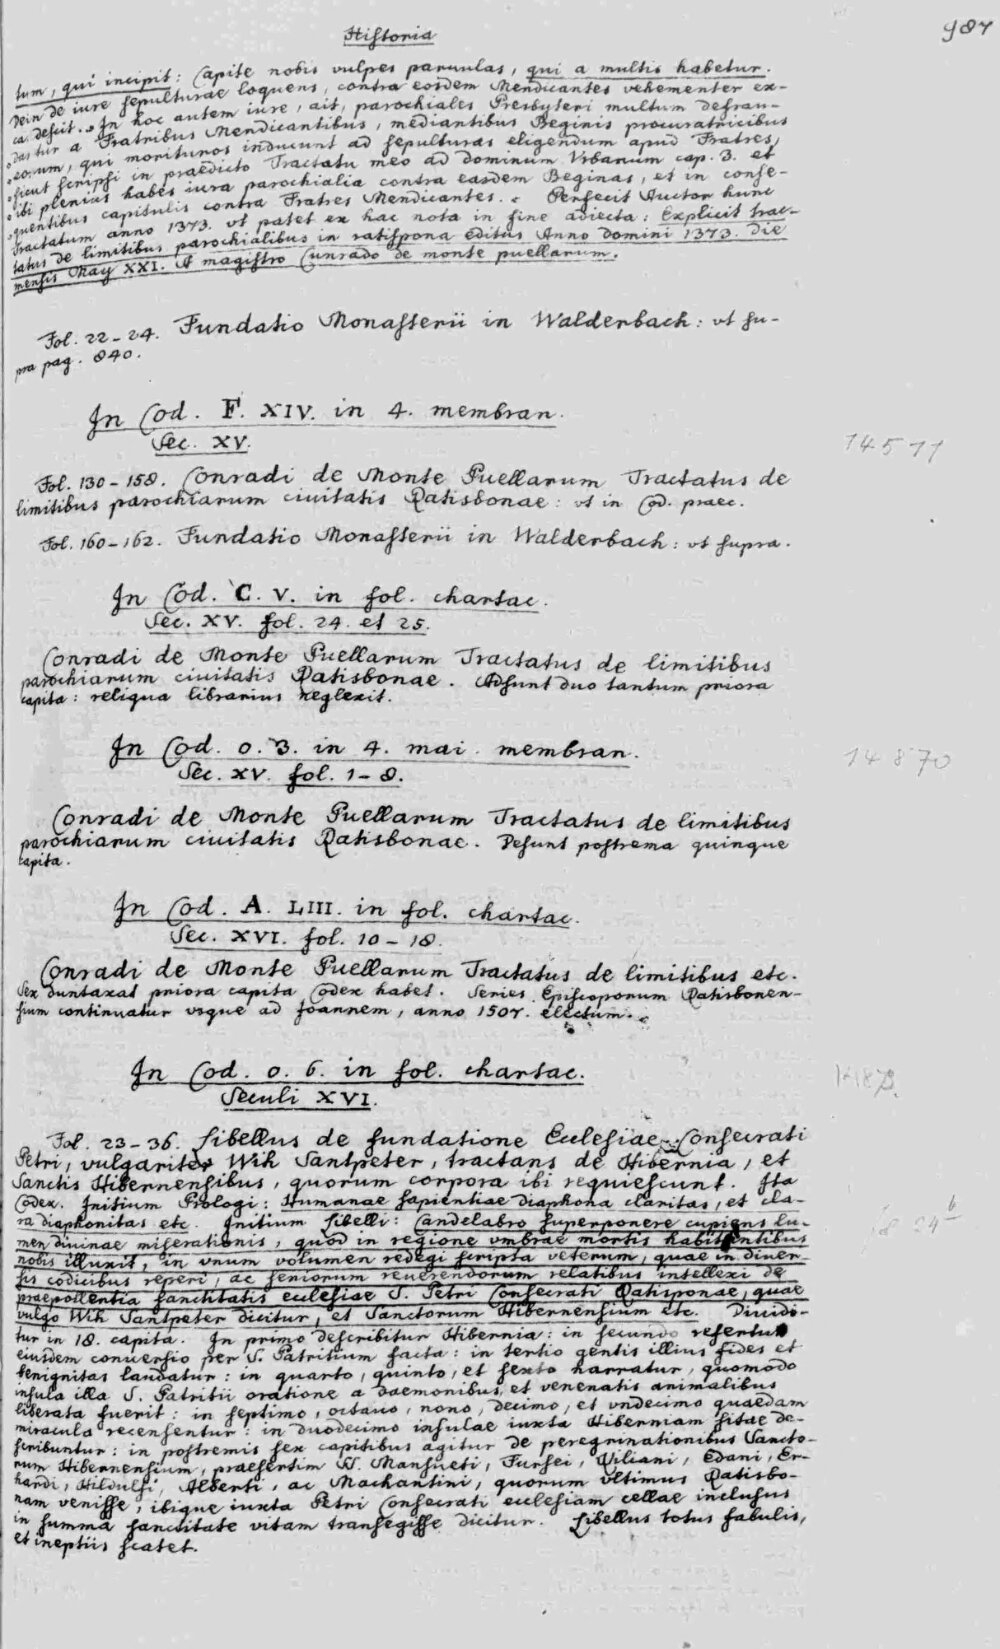 Historia
987
tum, qui incipit: Capite nobis vulpes paruulas, qui a multis habetur.
Dein de iure sepulturae loquens, contra eosdem Mendicantes vehementer ex-
ca defcit. In hoc autem iure, ait, parochiales Presbyteri multum defrau-
"dantur a Fratribus Mendicantibus, mediantibus Beginis procuratricibus
"eorum, qui morituros inducunt ad sepulturas eligendum apud Fratres,
"sicut scripsi in praedicto Tractatu meo ad dominum Vrbanum cap. 3. et
"ibi plenius habes iura parochialia contra easdem Beginas, et in conse-
"quentibus capitulis contra Fratres Mendicantes. " Perfecit Auctor hunc
Tractatum anno 1373. vt patet ex hac nota in fine adiecta: Explicit trac-
tatus de limitibus parochialibus in ratispona editus Anno domini 1373. Die
mensis May XXI. A magistro Cunrado de monte puellarum.
Fol. 22-24. Fundatio Monasterii in Walderbach: vt su-
pra pag. 840.
In Cod. F. XIV. in 4. membran.
Sec. XV.
14511
Fol. 130-158. Conradi de Monte Puellarum Tractatus de
limitibus parochiarum ciuitatis Ratisbonae: vt in Cod. praec.
Fol. 160-162. Fundatio Monasterii in Walderbach: vt supra.
In Cod. C. V. in fol. chartac.
Sec. XV. fol. 24 et 25.
Conradi de Monte Puellarum Tractatus de limitibus
parochiarum ciuitatis Ratisbonae. Adsunt duo tantum priora
capita: reliqua librarius neglexit.
In Cod. o. 3. in 4. mai. membran.
Sec. XV. fol. 1-8.
14870
Conradi de Monte Puellarum Tractatus de limitibus
parochiarum ciuitatis Ratisbonae. Desunt postrema quinque
capita.
In Cod. A. LIII. in fol. chartac.
Sec. XVI. fol. 10-18.
Conradi de Monte Puellarum Tractatus de limitibus etc.
Sex duntaxat priora capita Codex habet. Series Episcoporum Ratisbonen-
sium continuatur vsque ad Joannem, anno 1507. electum.
In Cod. o. 6. in fol. chartac.
Seculi XVI.
Fol. 23-36. Libellus de fundatione Ecclesiae Consecrati
Petri, vulgariter Wih Santpeter, tractans de Hibernia, et
Sanctis Hibernensibus, quorum corpora ibi requiescunt. Ita
Codex. Initium Prologi: Humanae sapientiae diaphona claritas, et cla-
ra diaphonitas etc. Initium Libelli: Candelabro superponere cupiens lu-
men diuinae miserationis, quod in regione vmbrae mortis habitantibus
nobis illuxit, in vnum volumen redegi scripta veterum, quae in diuer-
sis codicibus reperi, ac seniorum reuerendorum relatibus intellexi de
praepollentia sanctitatis ecclesiae S. Petri Consecrati Ratisponae, quae
vulgo Wih Santpeter dicitur, et Sanctorum Hibernensium etc. Diuidi-
tur in 18. capita. In primo describitur Hibernia: in secundo refertur
eiusdem conuersio per S. Patritium facta: in tertio gentis illius fides et
benignitas laudatur: in quarto, quinto, et sexto narratur, quomodo
insula illa S. Patritii oratione a daemonibus, et venenatis animalibus
liberata fuerit: in septimo, octauo, nono, decimo, et vndecimo quaedam
miracula recensentur: in duodecimo insulae iuxta Hiberniam sitae de-
scribuntur: in postremis sex capitibus agitur de peregrinationibus Sancto-
rum Hibernensium, praesertim SS. Mansueti, Fursei, Kiliani, Edani, Er-
hardi, Hildulfi, Alberti, ac Machantini, quorum vltimus Ratisbo-
nam venisse, ibique iuxta Petri Consecrati ecclesiam cellae inclusus
in summa sanctitate vitam transegisse dicitur. Libellus totus fabulis,
et ineptiis scatet.